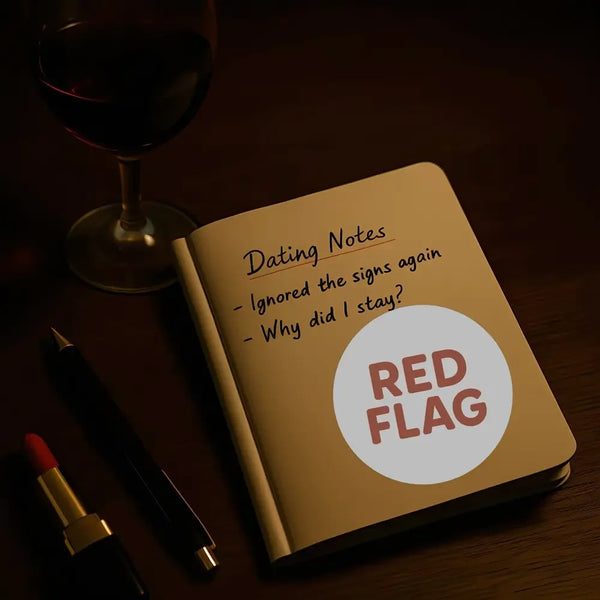 Dating Notes
- Ignored the signs again
- Why did I stay?
RED
FLAG